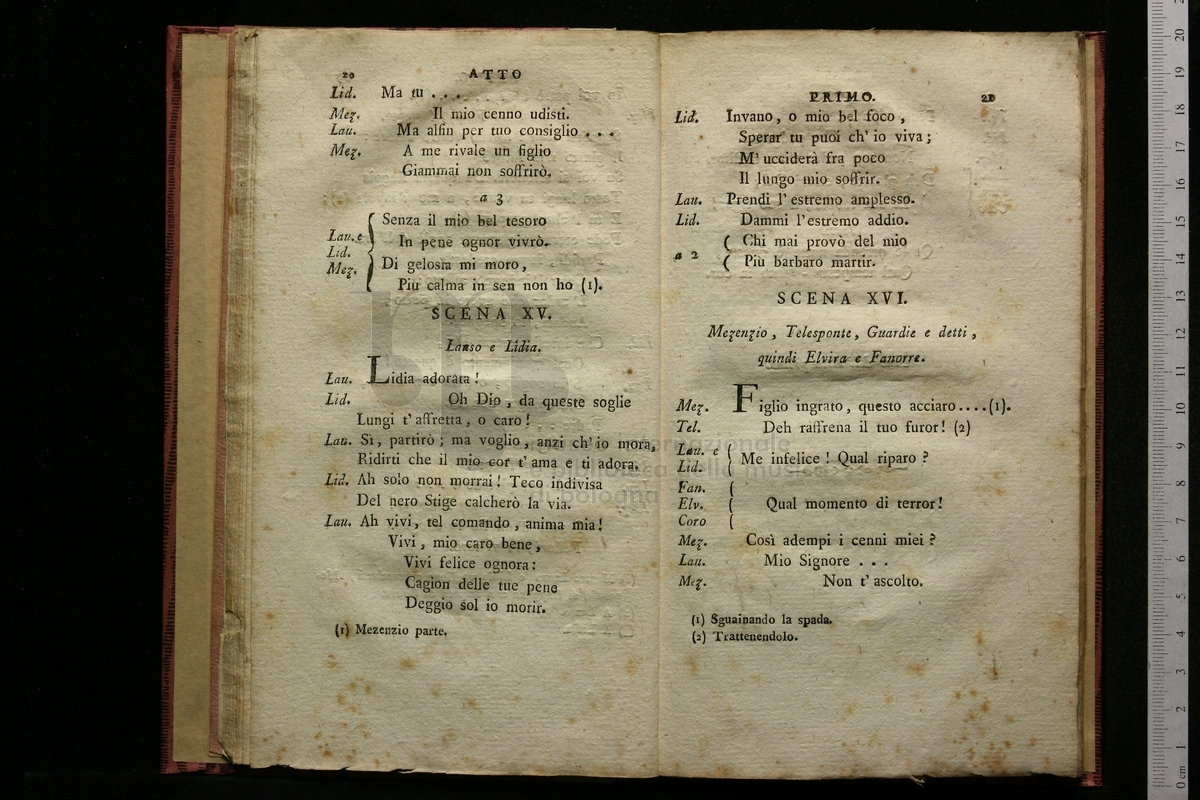 20 ATTO
Lid. Ma tu . . .
Mez. Il mio cenno udisti.
Lau. Ma alfin per tuo consiglio . . .
Mez. A me rivale un figlio
Giammai non soffrirò.
a 3
Senza il mio bel tesoro
Lau. e In pene ognor vivrò.
Lid.
Mez. Di gelosia mi moro,
Più calma in sen non ho (1).
SCENA XV.
Lauso e Lidia.
Lau. Lidia adorata !
Lid. Oh Dio , da queste soglie
Lungi t' affretta , o caro !
Lau. Sì, partirò ; ma voglio , anzi ch' io mora,
Ridirti che il mio cor t' ama e ti adora.
Lid. Ah solo non morrai ! Teco indivisa
Del nero Stige calcherò la via.
Lau. Ah vivi, tel comando , anima mia !
Vivi , mio caro bene ,
Vivi felice ognora :
Cagion delle tue pene
Deggio sol io morir.
(1) Mezenzio parte.
PRIMO. 21
Lid. Invano , o mio bel foco ,
Sperar tu puoi ch' io viva ;
M' ucciderà fra poco
Il lungo mio soffrir.
Lau. Prendi l' estremo amplesso.
Lid. Dammi l' estremo addio.
( Chi mai provò del mio
a 2
( Più barbaro martir.
SCENA XVI.
Mezenzio , Telesponte , Guardie e detti ,
quindi Elvira e Fanorre.
Mez. Figlio ingrato , questo acciaro....(1).
Tel. Deh raffrena il tuo furor ! (2)
Lau. e ( Me infelice ! Qual riparo ?
Lid. (
Fan. (
Elv. ( Qual momento di terror !
Coro (
Mez. Così adempi i cenni miei ?
Lau. Mio Signore . . .
Mez. Non t' ascolto.
(1) Sguainando la spada.
(2) Trattenendolo.